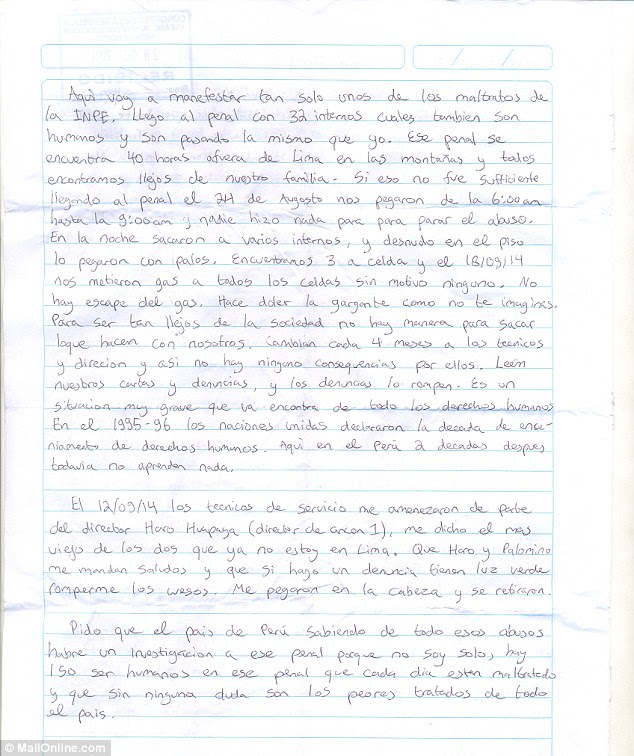 RECIBIDO
Aqui voy a manefestar tan solo unos de los maltratos de
la INPE. Llego al penal con 32 internos cuales tambien son
humanos y son pasando la mismo que yo. Ese penal se
encuentra 40 horas afuera de Lima en las montañas y todos
encontramos llejos de nuestro familia. Si eso no fue sufficiente
llegando al penal el 24 de Augosto nos pegaron de la 6:00am
hasta la 9:00am y nadie hizo nada para para parar el abuso.
En la noche sacaron a varios internos, y desnudo en el piso
lo pegaron con palos. Encuentramos 3 a celda y el 18/09/14
nos metieron gas a todos los celdas sin motivo ninguno. No
hay escape del gas. Hace doler la gargante como no te imagines.
Para ser tan llejos de la sociedad no hay manera para sacar
loque hacen con nosotros. Cambian cada 4 meses a los tecnicos
y direcion y asi no hay ninguno consequencias por ellos. Leen
nuestros cartas y denuncias, y los denuncias lo rompen. Es un
situacion muy grave que va encontra de todo los derechos humanos
En el 1995-96 los naciones unidas declararon la decada de ense-
niamento de derechos humanos. Aqui en el Perú 2 decadas despues
todavia no aprenden nada.
El 12/09/14 los tecnicos de servicio me amenezaron de parte
del director Haro Huapaya (diretor de ancon 1), me dicho el mas
viejo de los dos que ya no estoy en Lima. Que Haro y Palomino
me mandan saludos y que si hago un denuncia tienen luz verde
romperme los wesos. Me pegaron en la cabeza y se retiraron.
Pido que el pais de Perú sabiendo de todo esos abusos
habre un investigacion a ese penal porque no soy solo, hay
150 ser humanos en ese penal que cada dia esten maltratado
y que sin ninguna duda son los peores tratados de todo
el pais.
© MailOnline.com